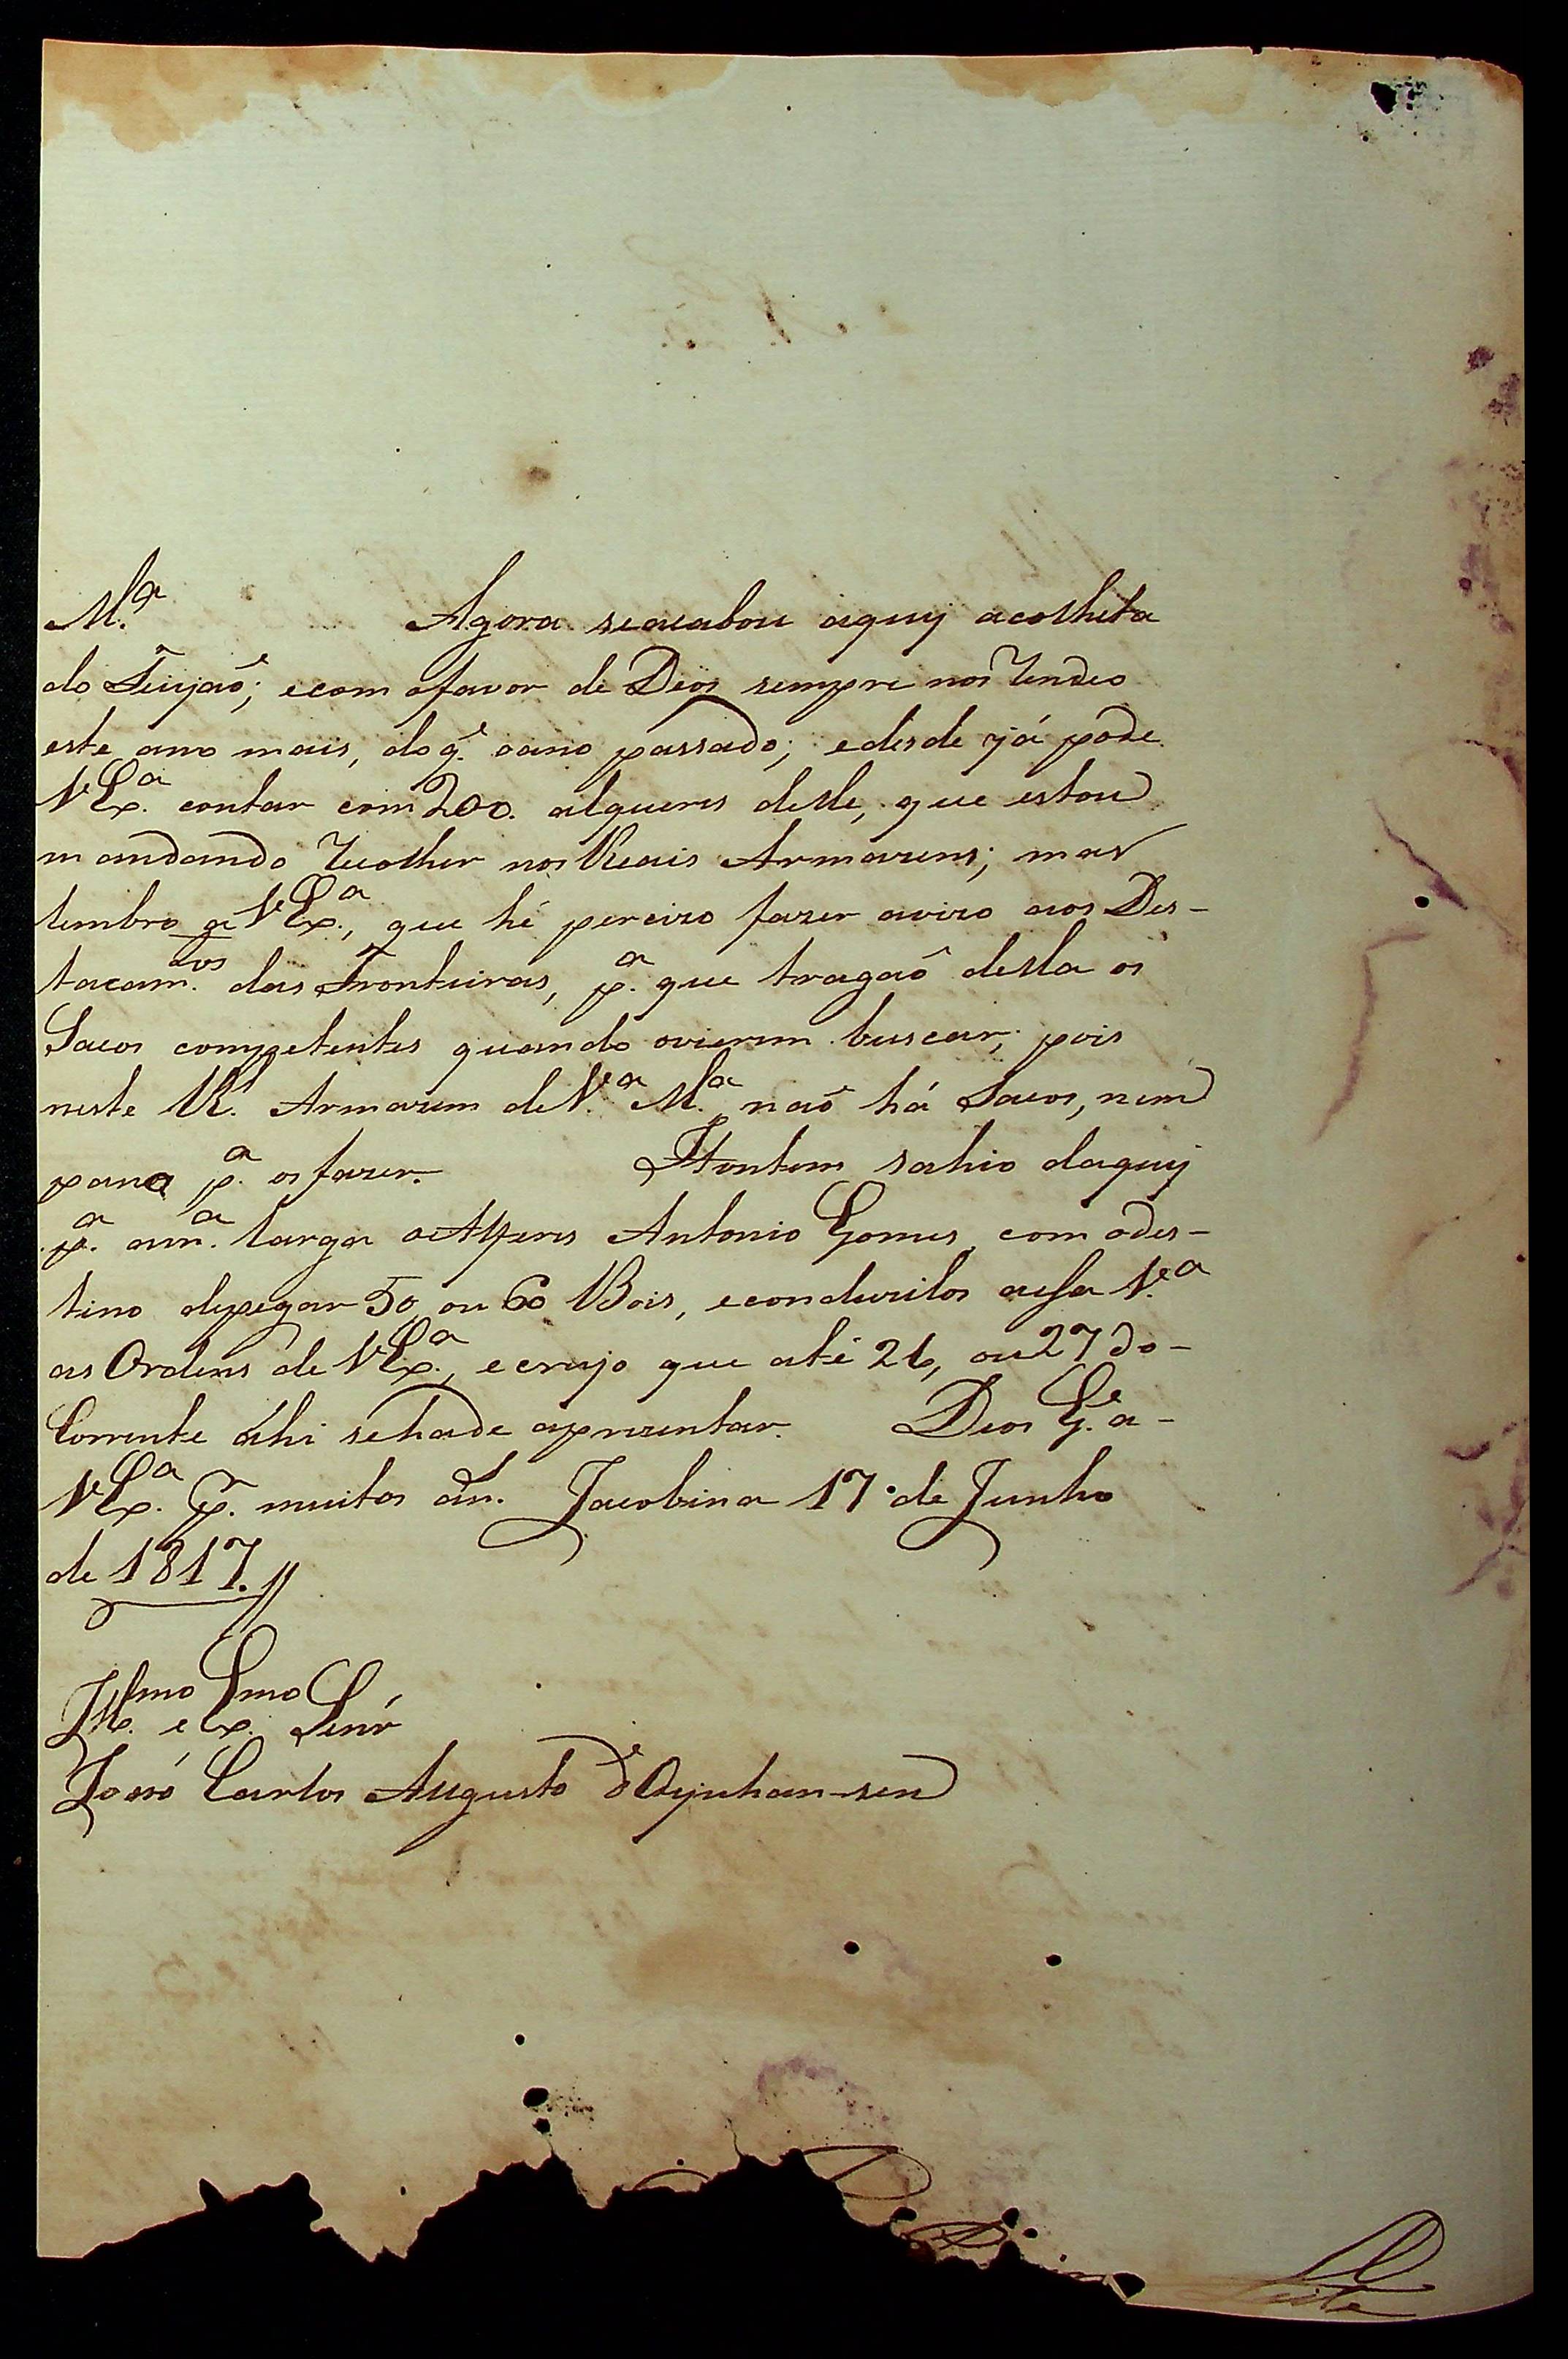 M.ª Agora seacabou aquy acolheita
do Feijaõ; ecom ofavor de Deos sempre nos Rendeo
este ano mais, doq.ᵉ oano passado; edesde já pode
VEx.ª contar com 200. alqueres delle, que estou
mandando Recolher nos Reais Armazens; mas
lembro a VEx.ª, que hé percizo fazer avizo aos Des-
tacam.ᵗᵒˢ das Fronteiras, p.ª que tragaõ de lla os
Sacos competentes quando ovierem buscar; pois
neste R.ˡ Armazem deV.ª M.ª naõ há Sacos, nem
pano p.ª os fazer. Hontem sahio daquy
p.ª am.ª larga oAlferes Antonio Gomes com odes-
tino depegar 50, ou 60 Bois, econduzilos aessa V.ª
as Ordens de VEx.ª, ecrejo que até 26, ou 27 do-
Corrente áhi sehade aprezentar. Deos G.ᵉ a-
VEx.ª p.ʳ muitos an. Jacobina 17 de Junho
de 1817.//
Ill.ᵐᵒ e Ex.ᵐᵒ Senr
Joaõ Carlos Augusto d'Oeynhausen
Leite